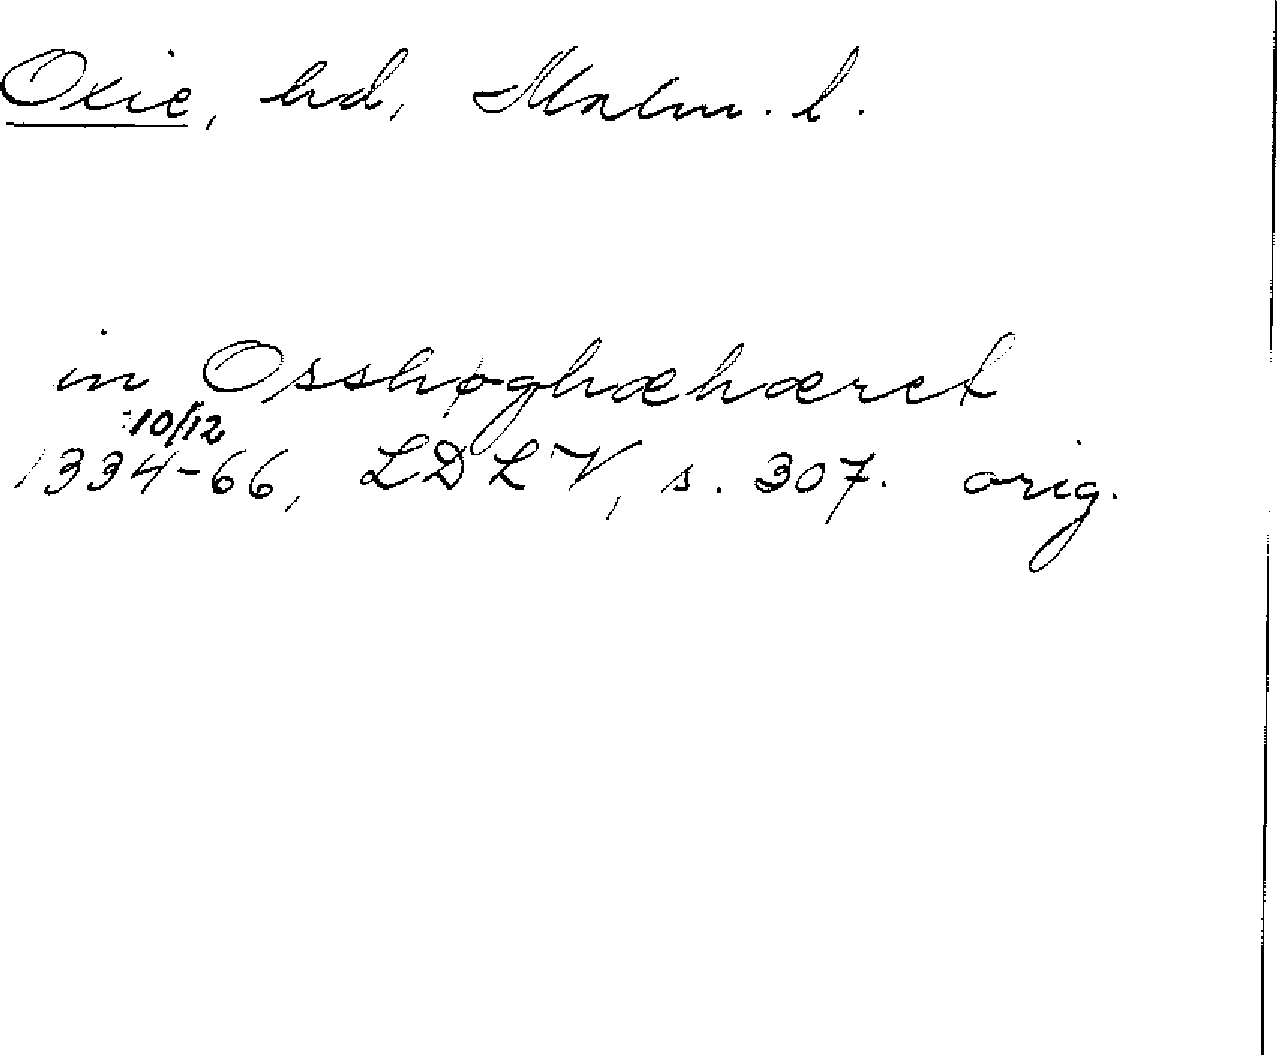 Oxie, hd, Malm. l.
in Osshøghæhæret
10/12
1334-66, LDLV, s. 307. orig.